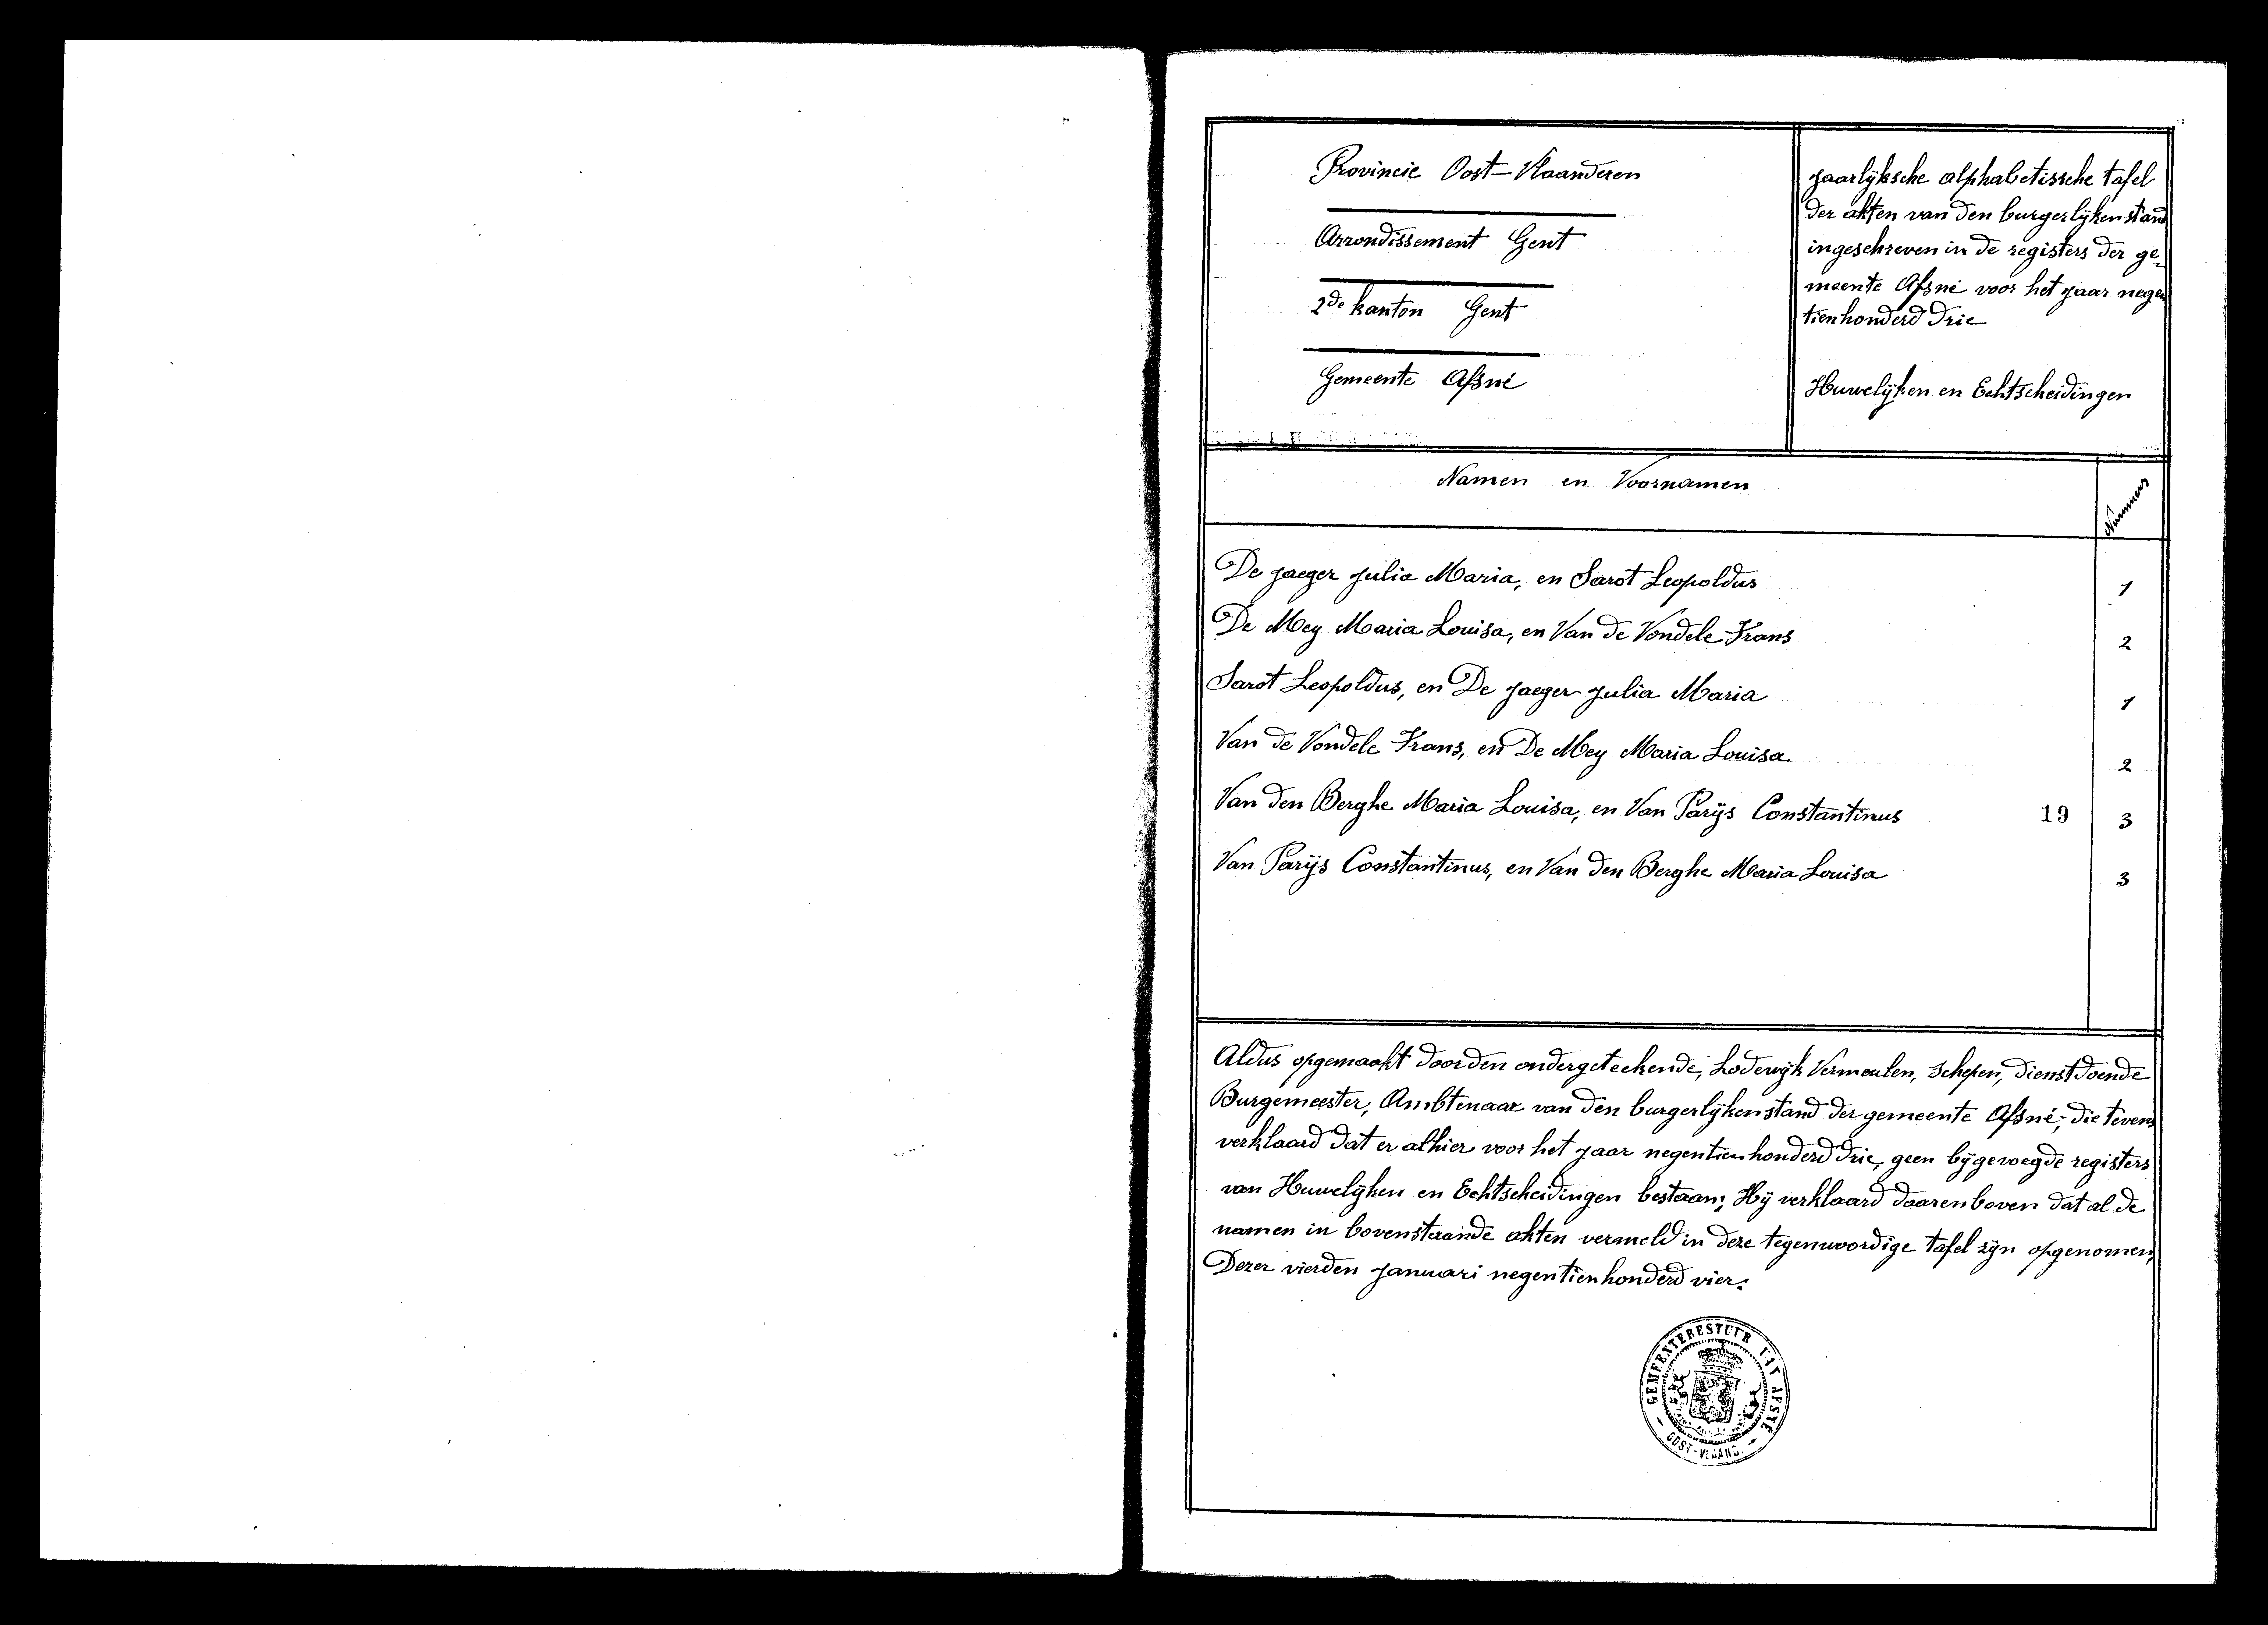 Provincie Oost-Vlaanderen
Arrondissement Gent
2de kanton Gent
Gemeente Afsné
jaarlijksche alphabetissche tafel
der akten van den burgerlijken stand
ingeschreven in de registers der ge-
meente Afsné voor het jaar negen
tienhonderd drie
Huwelijken en Echtscheidingen
Namen en Voornamen
Nummers
De jaeger julia Maria, en Sarot Leopoldus 1
De Mey Maria Louisa, en Van de Vondele Frans 2
Sarot Leopoldus, en De jaeger julia Maria 1
Van de Vondele Frans, en De Mey Maria Louisa 2
Van den Berghe Maria Louisa, en Van Parijs Constantinus 19 3
Van Parijs Constantinus, en Van den Berghe Maria Louisa 3
Aldus opgemaakt door den ondergeteekende, Lodewijk Vermeulen, schepen, dienstdoende
Burgemeester, Ambtenaar van den burgerlijken stand der gemeente Afsné, die tevens
verklaard dat er alhier voor het jaar negentienhonderd drie, geen bijgevoegde registers
van Huwelijken en Echtscheidingen bestaan; Hij verklaard daarenboven dat al de
namen in bovenstaande akten vermeld in deze tegenwoordige tafel zijn opgenomen,
Dezer vierden januari negentienhonderd vier.
GEMEENTEBESTUUR VAN AFSNE
OOST-VLAAND.